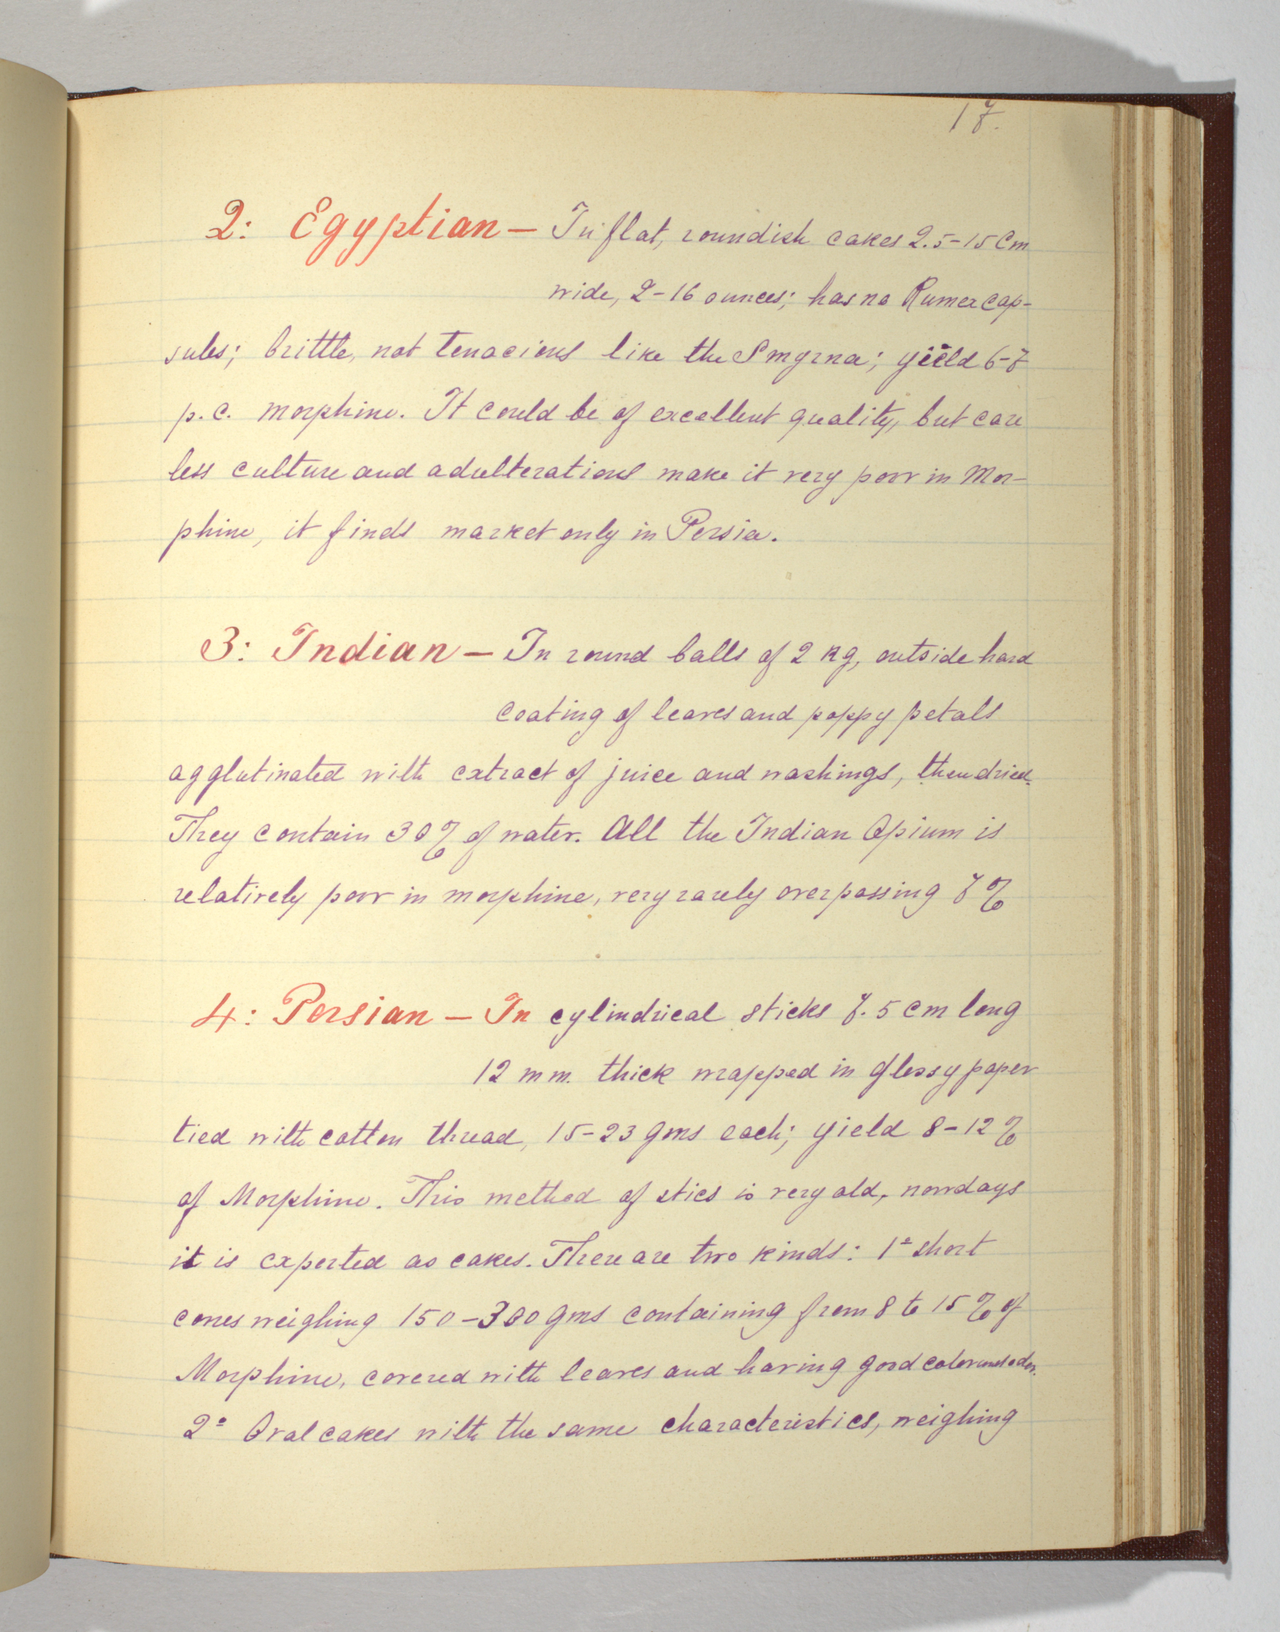 17.
2: Egyptian — In flat, roundish cakes 2.5-15 Cm
wide, 2-16 ounces; has no Rumex cap-
sules; brittle, not tenacious like the Smyrna; yield 6-7
p.c. morphine. It could be of excellent quality, but care
less culture and adulterations make it very poor in Mor-
phine, it finds market only in Persia.
3: Indian — In round balls of 2 Kg, outside hard
coating of leaves and poppy petals
agglutinated with extract of juice and washings, then dried.
They contain 30% of water. All the Indian Opium is
relatively poor in morphine, very rarely overpassing 7%
4: Persian — In cylindrical sticks 7.5 cm long
12 mm. thick wrapped in glossy paper
tied with cotton thread, 15-23 gms each; yield 8-12%
of Morphine. This method of stics is very old, nowdays
it is exported as cakes. There are two kinds: 1º short
cones weighing 150-300 gms containing from 8 to 15% of
Morphine, covered with leaves and having good color and odor.
2º Oval cakes with the same characteristics, weighing